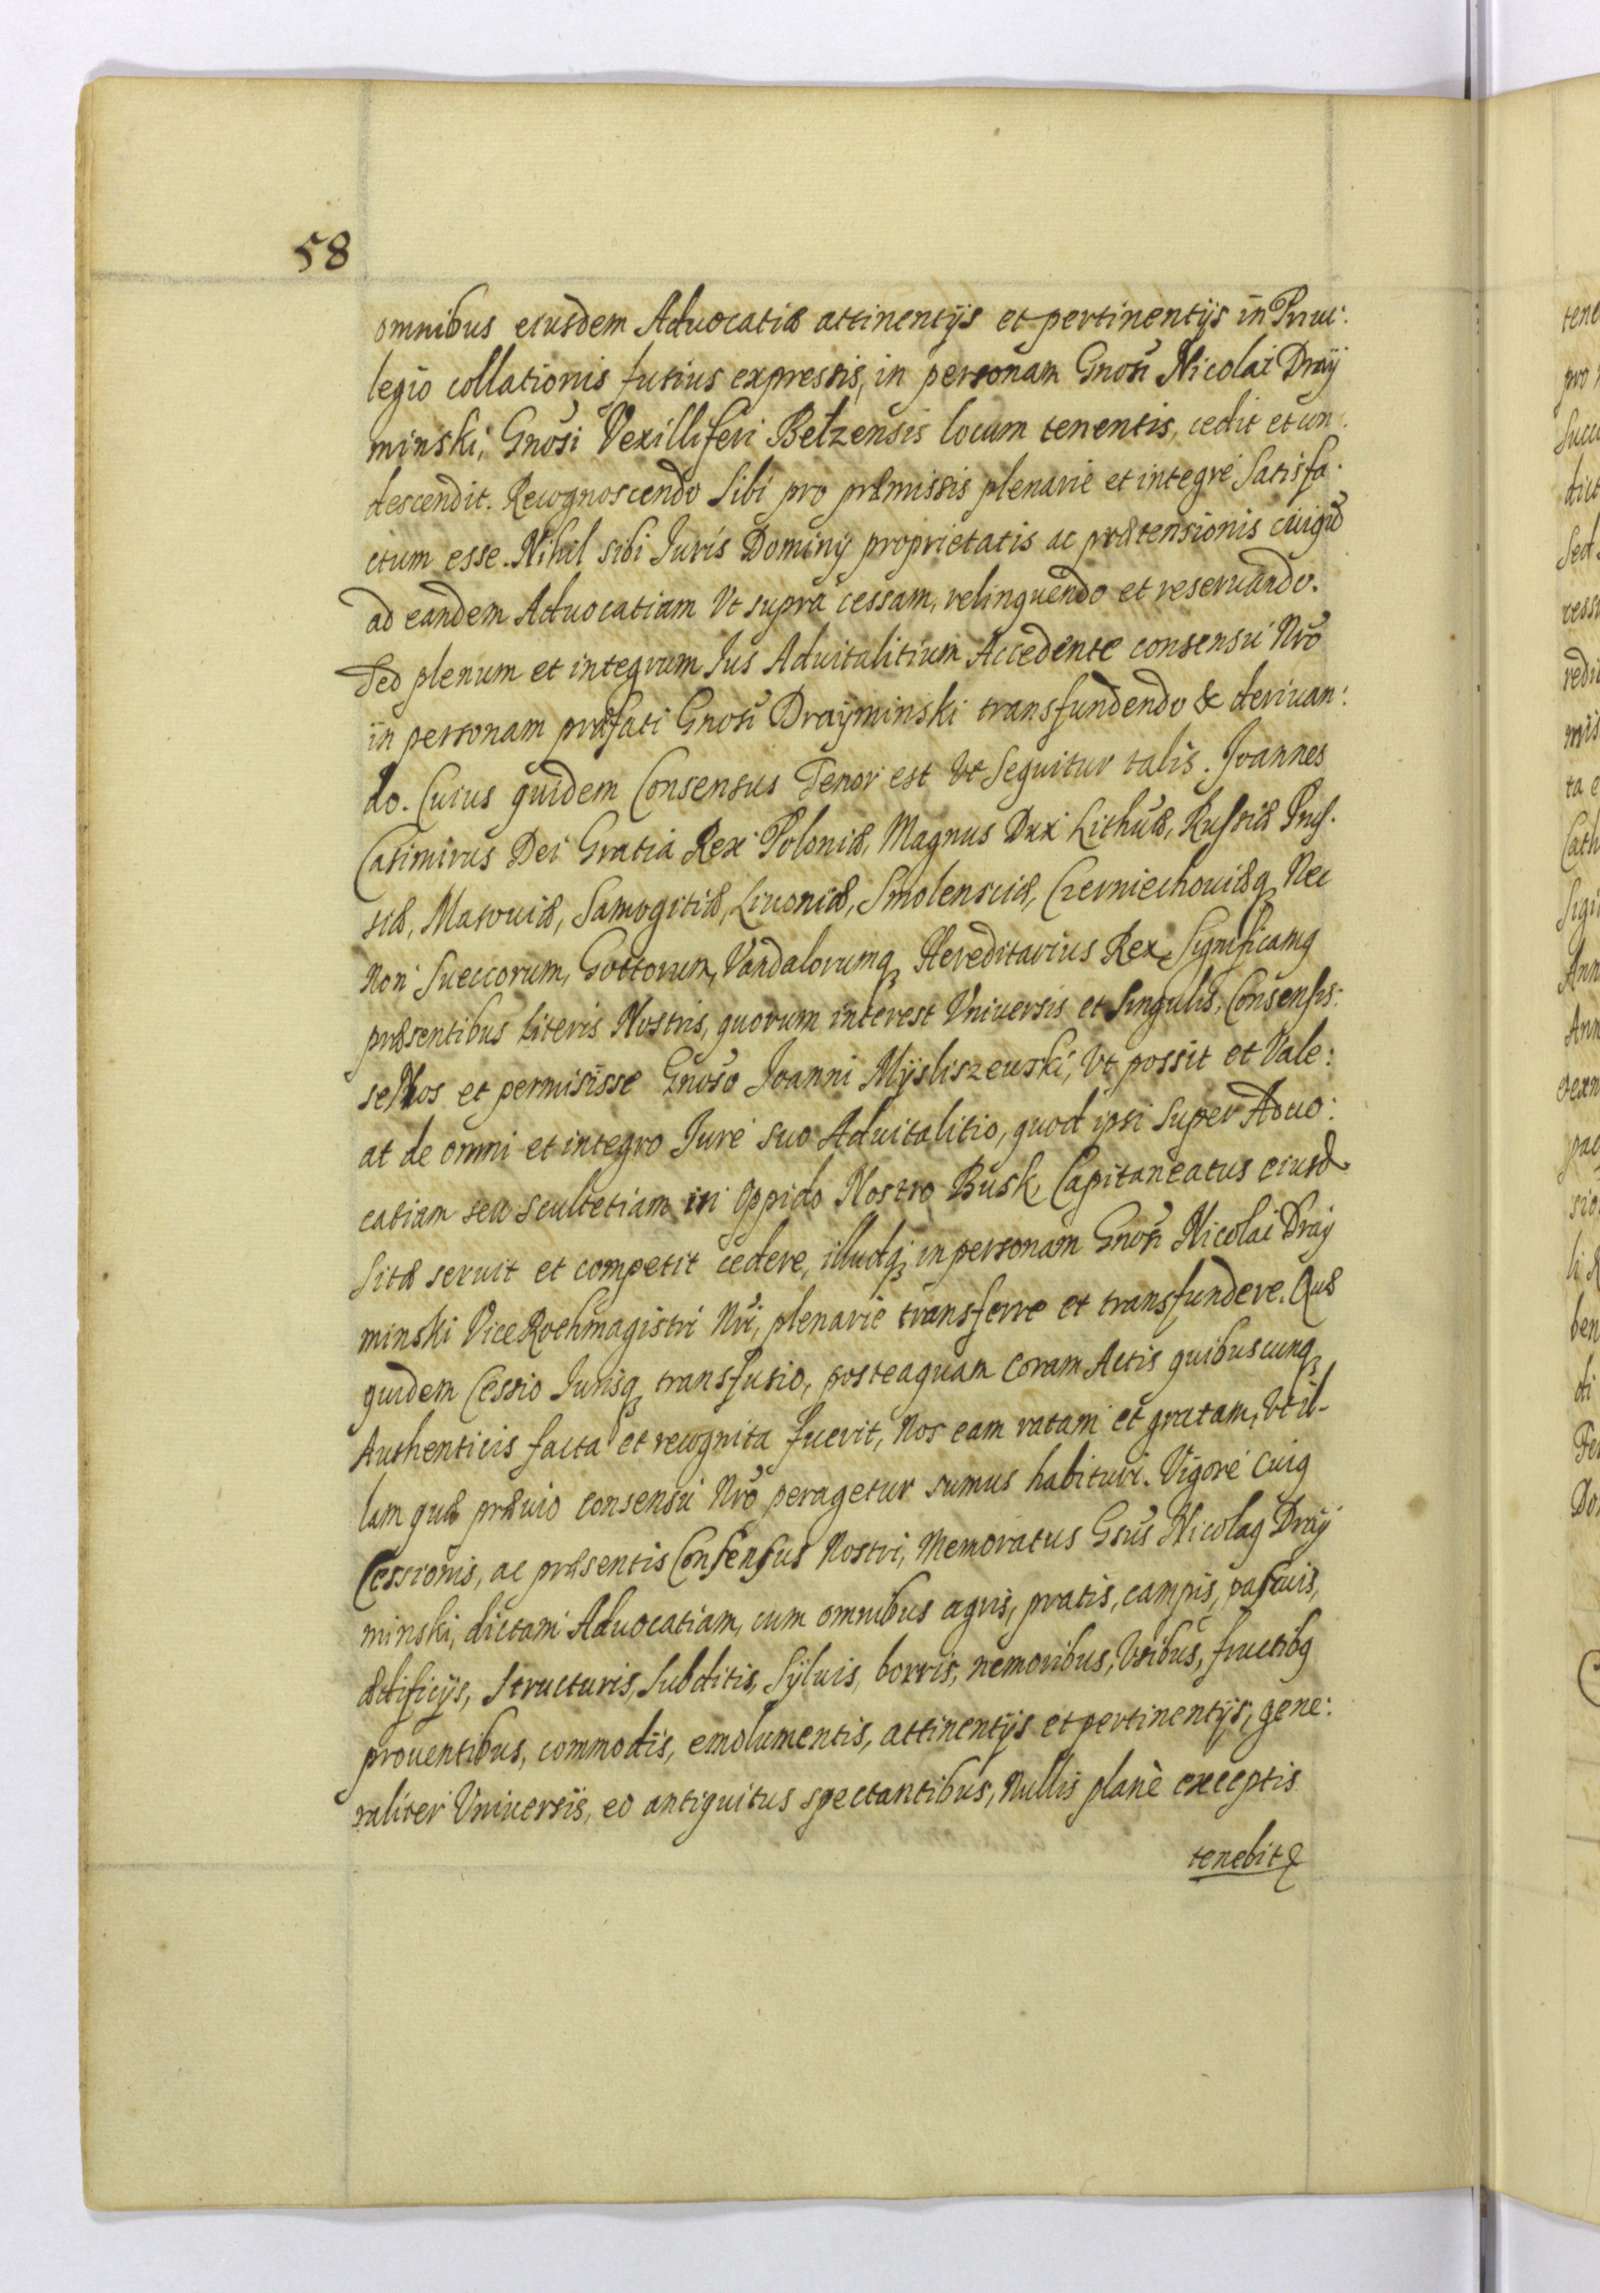 58
omnibus eiusdem Aduocatiæ attinentijs et pertinentijs in Priui:
legio collationis fusius expressis, in personam Gnosi Nicolai Dray
minski, Gnosi Vexilliferi Belzensis locum tenentis, cedit et con:
descendit. Recognoscendo Sibi pro præmissis plenarie et integré Satisfa:
ctum esse. Nihil sibi Iuris Dominij proprietatis ac prætensionis cuiq
ad eandem Aduocatiam Vt supra cessam, relinquendo et reseruando.
Sed plenum et integrum Ius Aduitalitium Accedente consensu Nro
in personam præfati Gnosi Drayminski transfundendo & deriuan:
do. Cuius quidem Consensus Tenor est Vt Sequitur talis. Joannes
Casimirus Dei Gratia Rex Poloniæ, Magnus Dux Lithuæ, Russiæ Prus:
siæ, Masouiæ, Samogitiæ, Liuoniæ, Smolensciæ, Czerniechouiæq Nec
non Sueccorum, Gottorum, Vandalorumq Hereditarius Rex. Significamq
præsentibus Literis Nostris, quorum interest Vniuersis et Singulis, Consensis:
se Nos et permisisse Gnoso Joanni Mysliszewski, Vt possit et Vale:
at de omni et integro Jure suo Aduitalitio, quod ipsi Super Aduo:
catiam seu Scultetiam in Oppido Nostro Busk, Capitaneatus eiusd
Sitæ seruit et competit cedere, illudq in personam Gnosi Nicolai Dray
minski Vice Rothmagistri Nri, plenarie transferre et transfundere. Quæ
quidem Cessio Jurisq transfusio, posteaquam coram Actis quibuscunq
Authenticis facta et recognita fuerit, Nos eam ratam et gratam, Vt il-
lam quæ præuio consensu Nro peragetur sumus habituri. Vigore cuiq
Cessionis, ac præsentis Consensus Nostri, Memoratus Gsus Nicolaq Dray
minski, dictam Aduocatiam, cum omnibus agris, pratis, campis, pascuis,
ædificijs, Structuris, Subditis, Syluis, borris, nemoribus, Vsibus, fructibq
prouentibus, commodis, emolumentis, attinentijs et pertinentijs, gene:
raliter Vniuersis, eo antiquitus spectantibus, Nullis planè exceptis
tenebit